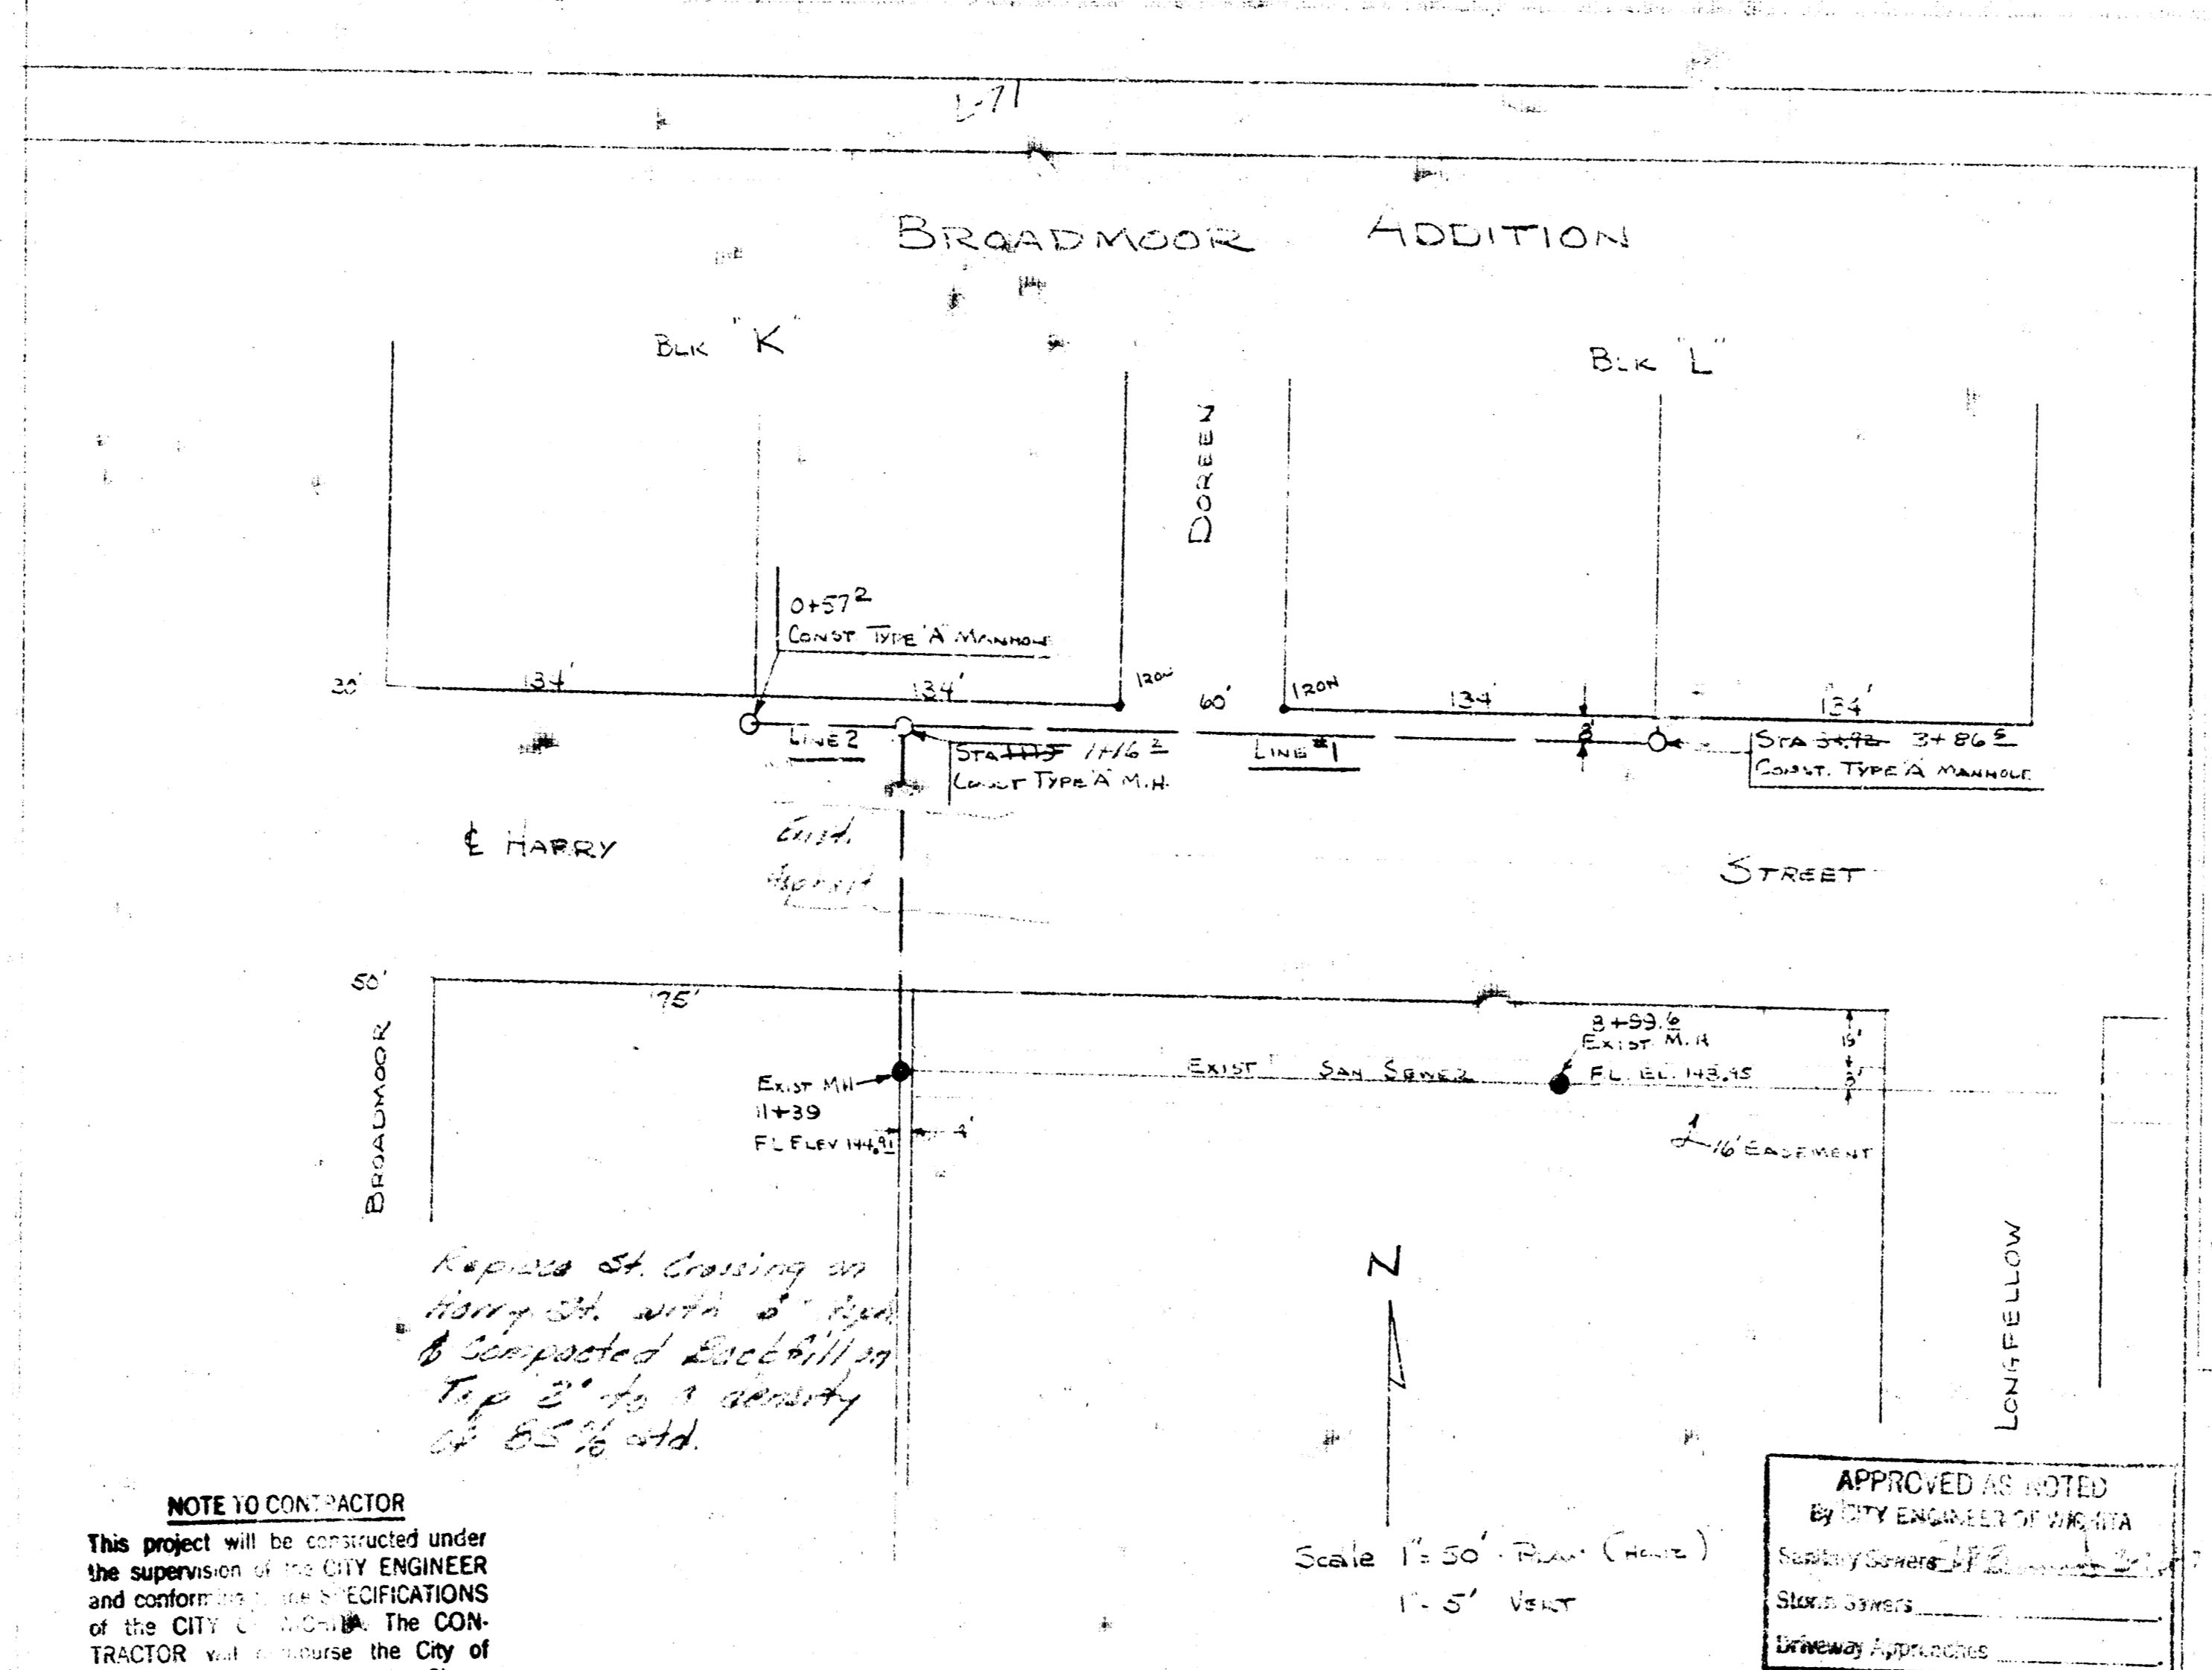 L-71
BROADMOOR ADDITION
BLK "K"
BLK "L"
DOREEN
0+57²
CONST TYPE "A" MANHOLE
30'
134'
134'
120N
60'
120N
134'
134'
8'
LINE 2
STA 1+15 1+16²
CONST TYPE "A" M.H.
LINE #1
STA 3+92 3+86⁵
CONST. TYPE "A" MANHOLE
Exist.
Asphalt
℄ HARRY
STREET
50'
175'
8+99.6
EXIST. M.H
FL. EL. 143.95
15'
8'
EXIST SAN SEWER
EXIST MH
11+39
FL ELEV 144.91
4'
16' EASEMENT
BROADMOOR
LONGFELLOW
Replace St. Crossing on
Harry St. with 6"
& Compacted Backfill on
Top 2' to a density
of 85% std.
N
Scale 1"= 50' PLAN (HORIZ)
1"- 5' VERT
NOTE TO CONTRACTOR
This project will be constructed under
the supervision of the CITY ENGINEER
and conforming to the SPECIFICATIONS
of the CITY OF WICHITA. The CON-
TRACTOR will the City of
APPROVED AS NOTED
By CITY ENGINEER OF WICHITA
Sanitary Sewers
Storm Sewers
Driveway Approaches